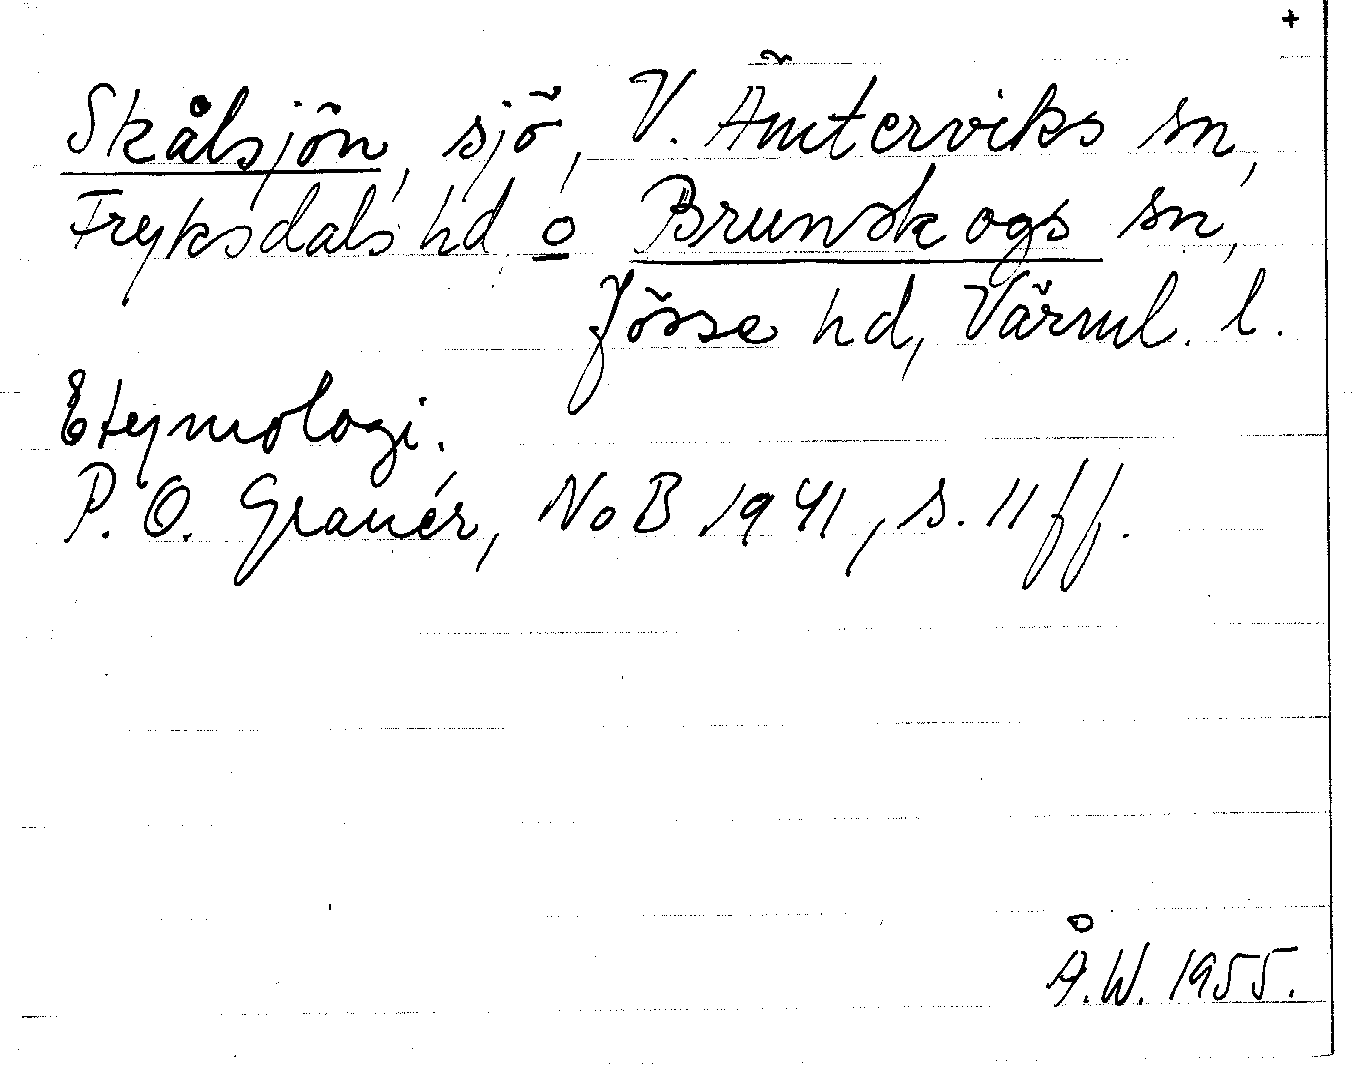 +
Skålsjön, sjö, V. Ämterviks sn,
Fryksdals hd o Brunskogs sn,
Jösse hd, Värml. l.
Etymologi.
P. O. Granér, NoB 1941, s. 11 ff.
Å.W. 1955.